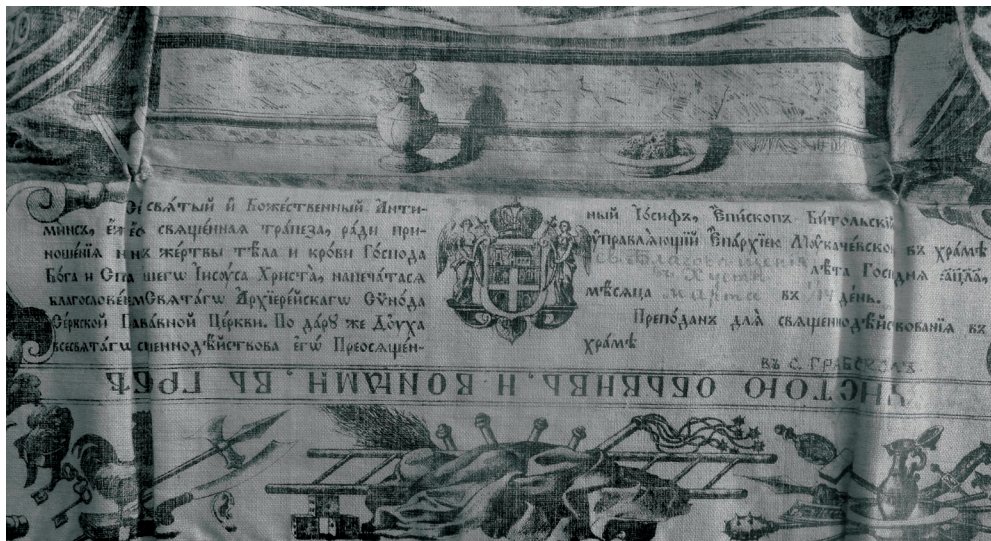 Сей свѧ́тый и҆ Боже́ственный А҆нти-
минсъ, є҆́же є҆́сть свѧще́ннаѧ тра́пеза, ра́ди при-
ноше́нїѧ на нихъ же́ртвы тѣ́ла и кро́ви Го́спода
Бо́га и Спа шегѡ І҆исꙋ́са Христа̀, напеча́тасѧ
благослове́н мъ Свѧта́гѡ А҆рхїере́йскагѡ Сѷно́да
Се́рбской Пр ва́вной Це́ркви. По да́рꙋ же Дꙋ́ха
всесвѧта́гѡ сщенноде́йствова є҆гѡ̀ Преосщѧ́щен-
ный І҆ѡ́сифъ, Є҆пи́скопъ Би́тольскїй
ᲂу҆правлѧ́ющїй Є҆па́рхїею Мꙋкаче́вскою въ хра́мѣ
Св. Благовѣщенія
въ Хустѣ лѣ́та Госпо́днѧ ҂а҃цл҃а,
мѣ́сѧца марта въ 14 де́нь.
Препода́нъ длѧ̀ свѧщеннодѣ́йствованїѧ въ
хра́мѣ
въ с.
ЧИСТОЮ ОБЬВИВЬ, И ВОНѦМИ, ВЬ ГРОБѢ